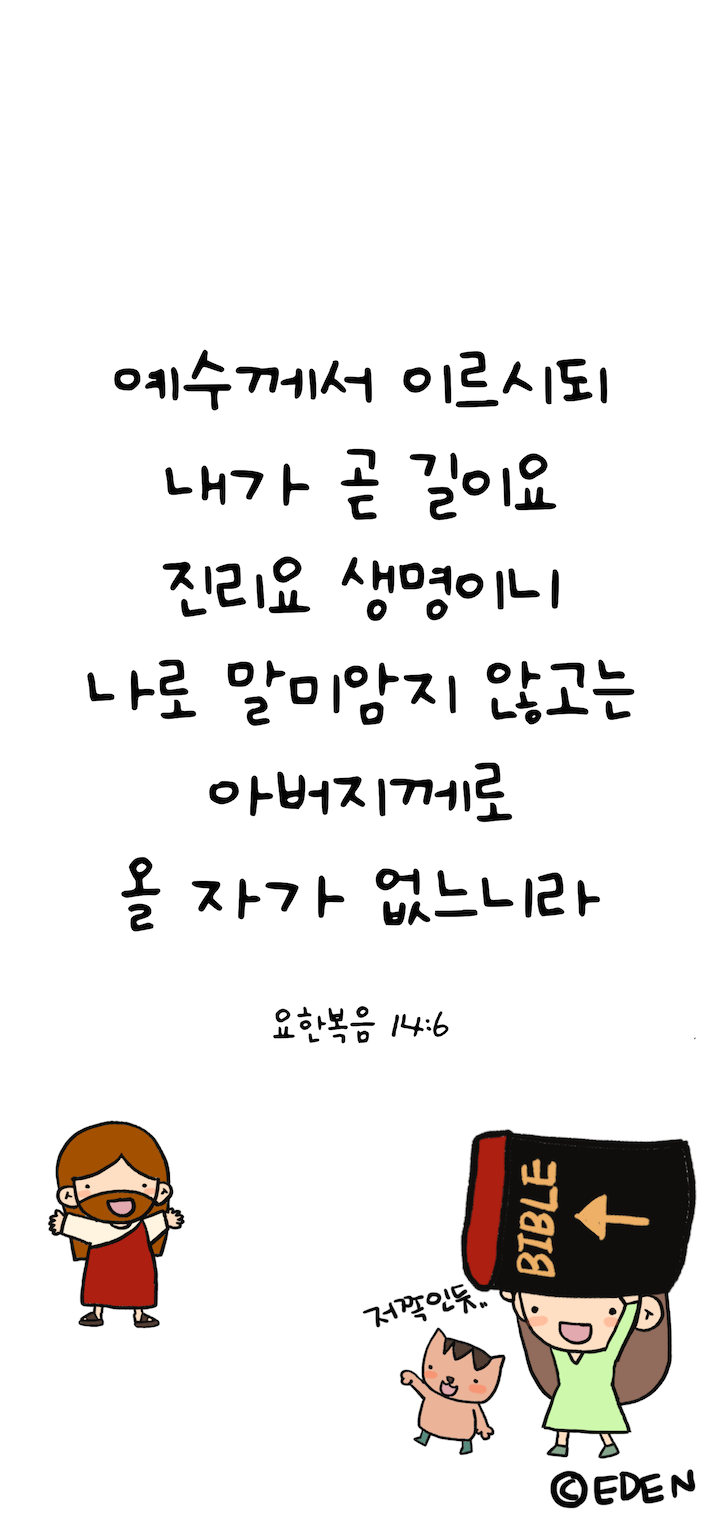 예수께서 이르시되
내가 곧 길이요
진리요 생명이니
나로 말미암지 않고는
아버지께로
올 자가 없느니라
요한복음 14:6
BIBLE
저쪽인듯..
©EDEN